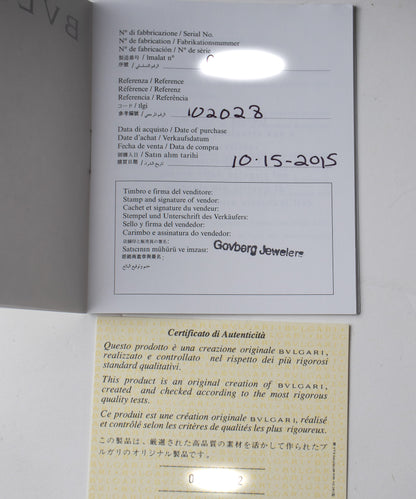 BVL
N° di fabbricazione / Serial No.
N° de fabrication / Fabrikationsnummer
N° de fabricación / N° de série
製造番号 / Imalat n°
序號 / الرقم التسلسلي
Referenza / Reference
Référence / Referenz
Referencia / Referência
コード / Ilgi
參考編號 / الرقم المرجعي 102028
Data di acquisto / Date of purchase
Date d'achat / Verkaufsdatum
Fecha de venta / Data de compra
御購入日 / Satın alım tarihi
購買日期 / تاريخ الشراء 10-15-2015
Timbro e firma del venditore:
Stamp and signature of vendor:
Cachet et signature du vendeur:
Stempel und Unterschrift des Verkäufers:
Sello y firma del vendedor:
Carimbo e assinatura do vendedor:
Satıcının mühürü ve imzası: Govberg Jewelers
Certificato di Autenticità
Questo prodotto è una creazione originale BVLGARI,
realizzato e controllato nel rispetto dei più rigorosi
standard qualitativi.
This product is an original creation of BVLGARI,
created and checked according to the most rigorous
quality tests.
Ce produit est une création originale BVLGARI, réalisé
et contrôlé selon les critères de qualités les plus rigoureux.
この製品は、厳選された高品質の素材を活かして作られたブ
ルガリのオリジナル製品です。